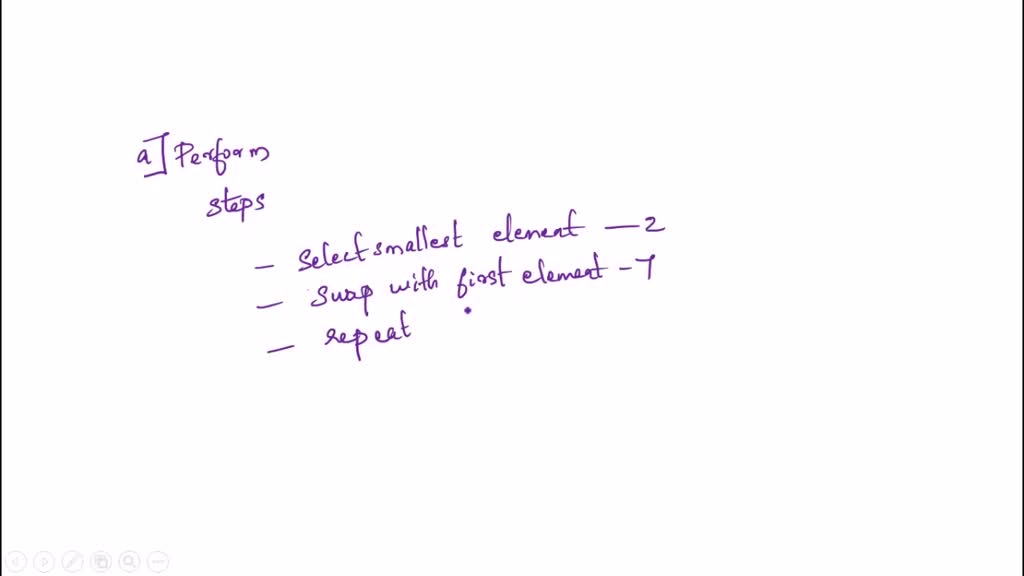 a] Perform
steps
- Select smallest element - 2
- Swap with first element - 7
- repeat